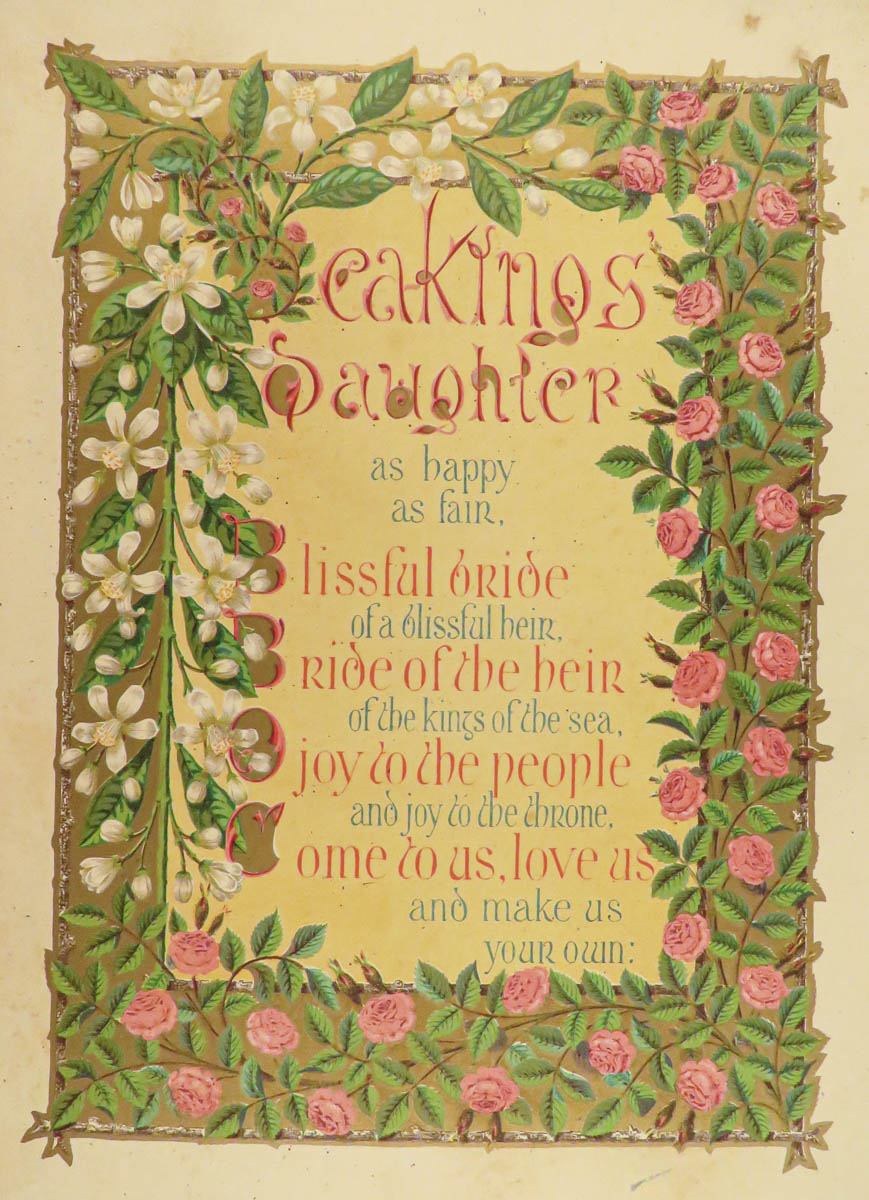 Seakings'
Daughter
as happy
as fair,
Blissful bride
of a blissful heir,
Bride of the heir
of the kings of the sea,
O joy to the people
and joy to the throne,
Come to us, love us
and make us
your own: